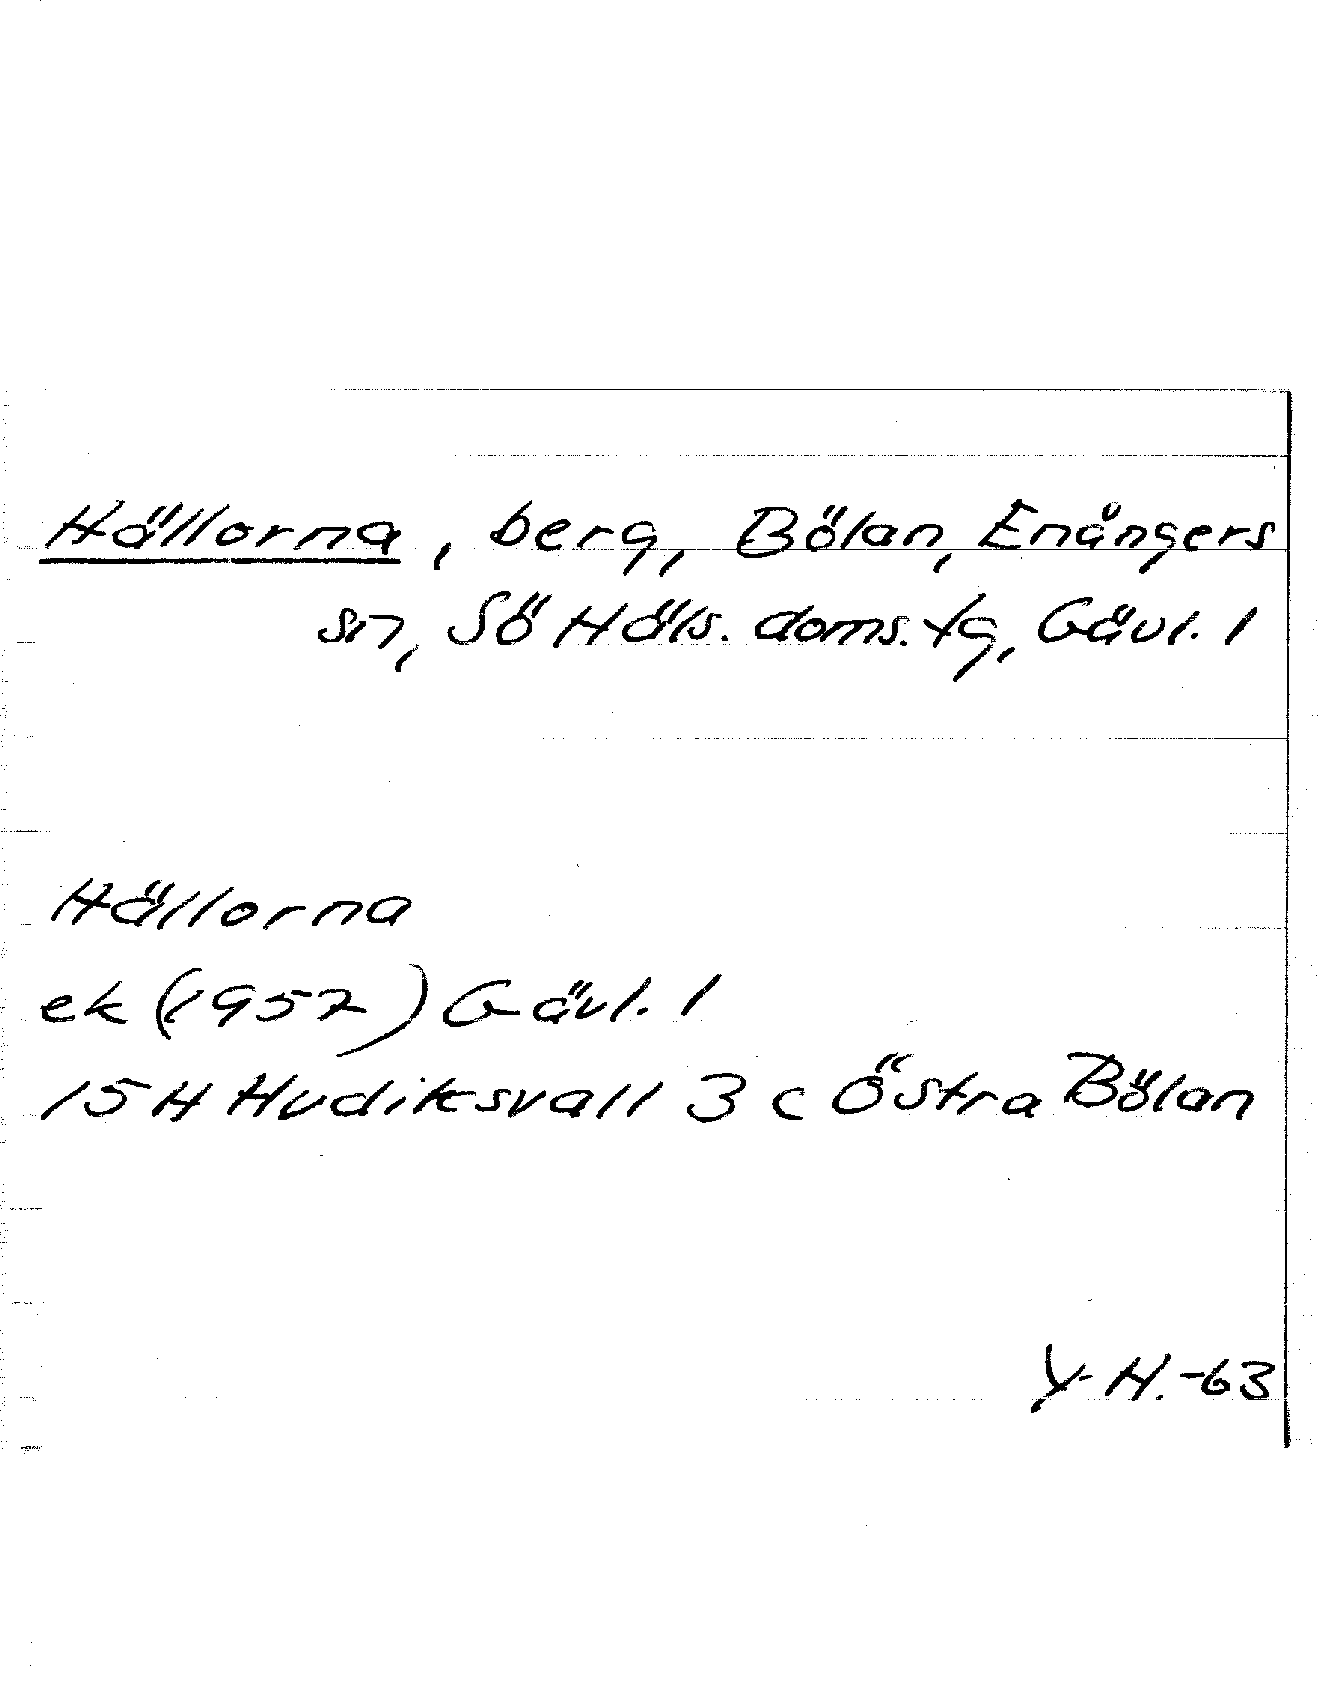 Hällorna, berg, Bölan, Enångers
sn, Sö Häls. doms. tg, Gävl. l
Hällorna
ek (1957) Gävl. l
15 H Hudiksvall 3 c Östra Bölan
Y H. -63